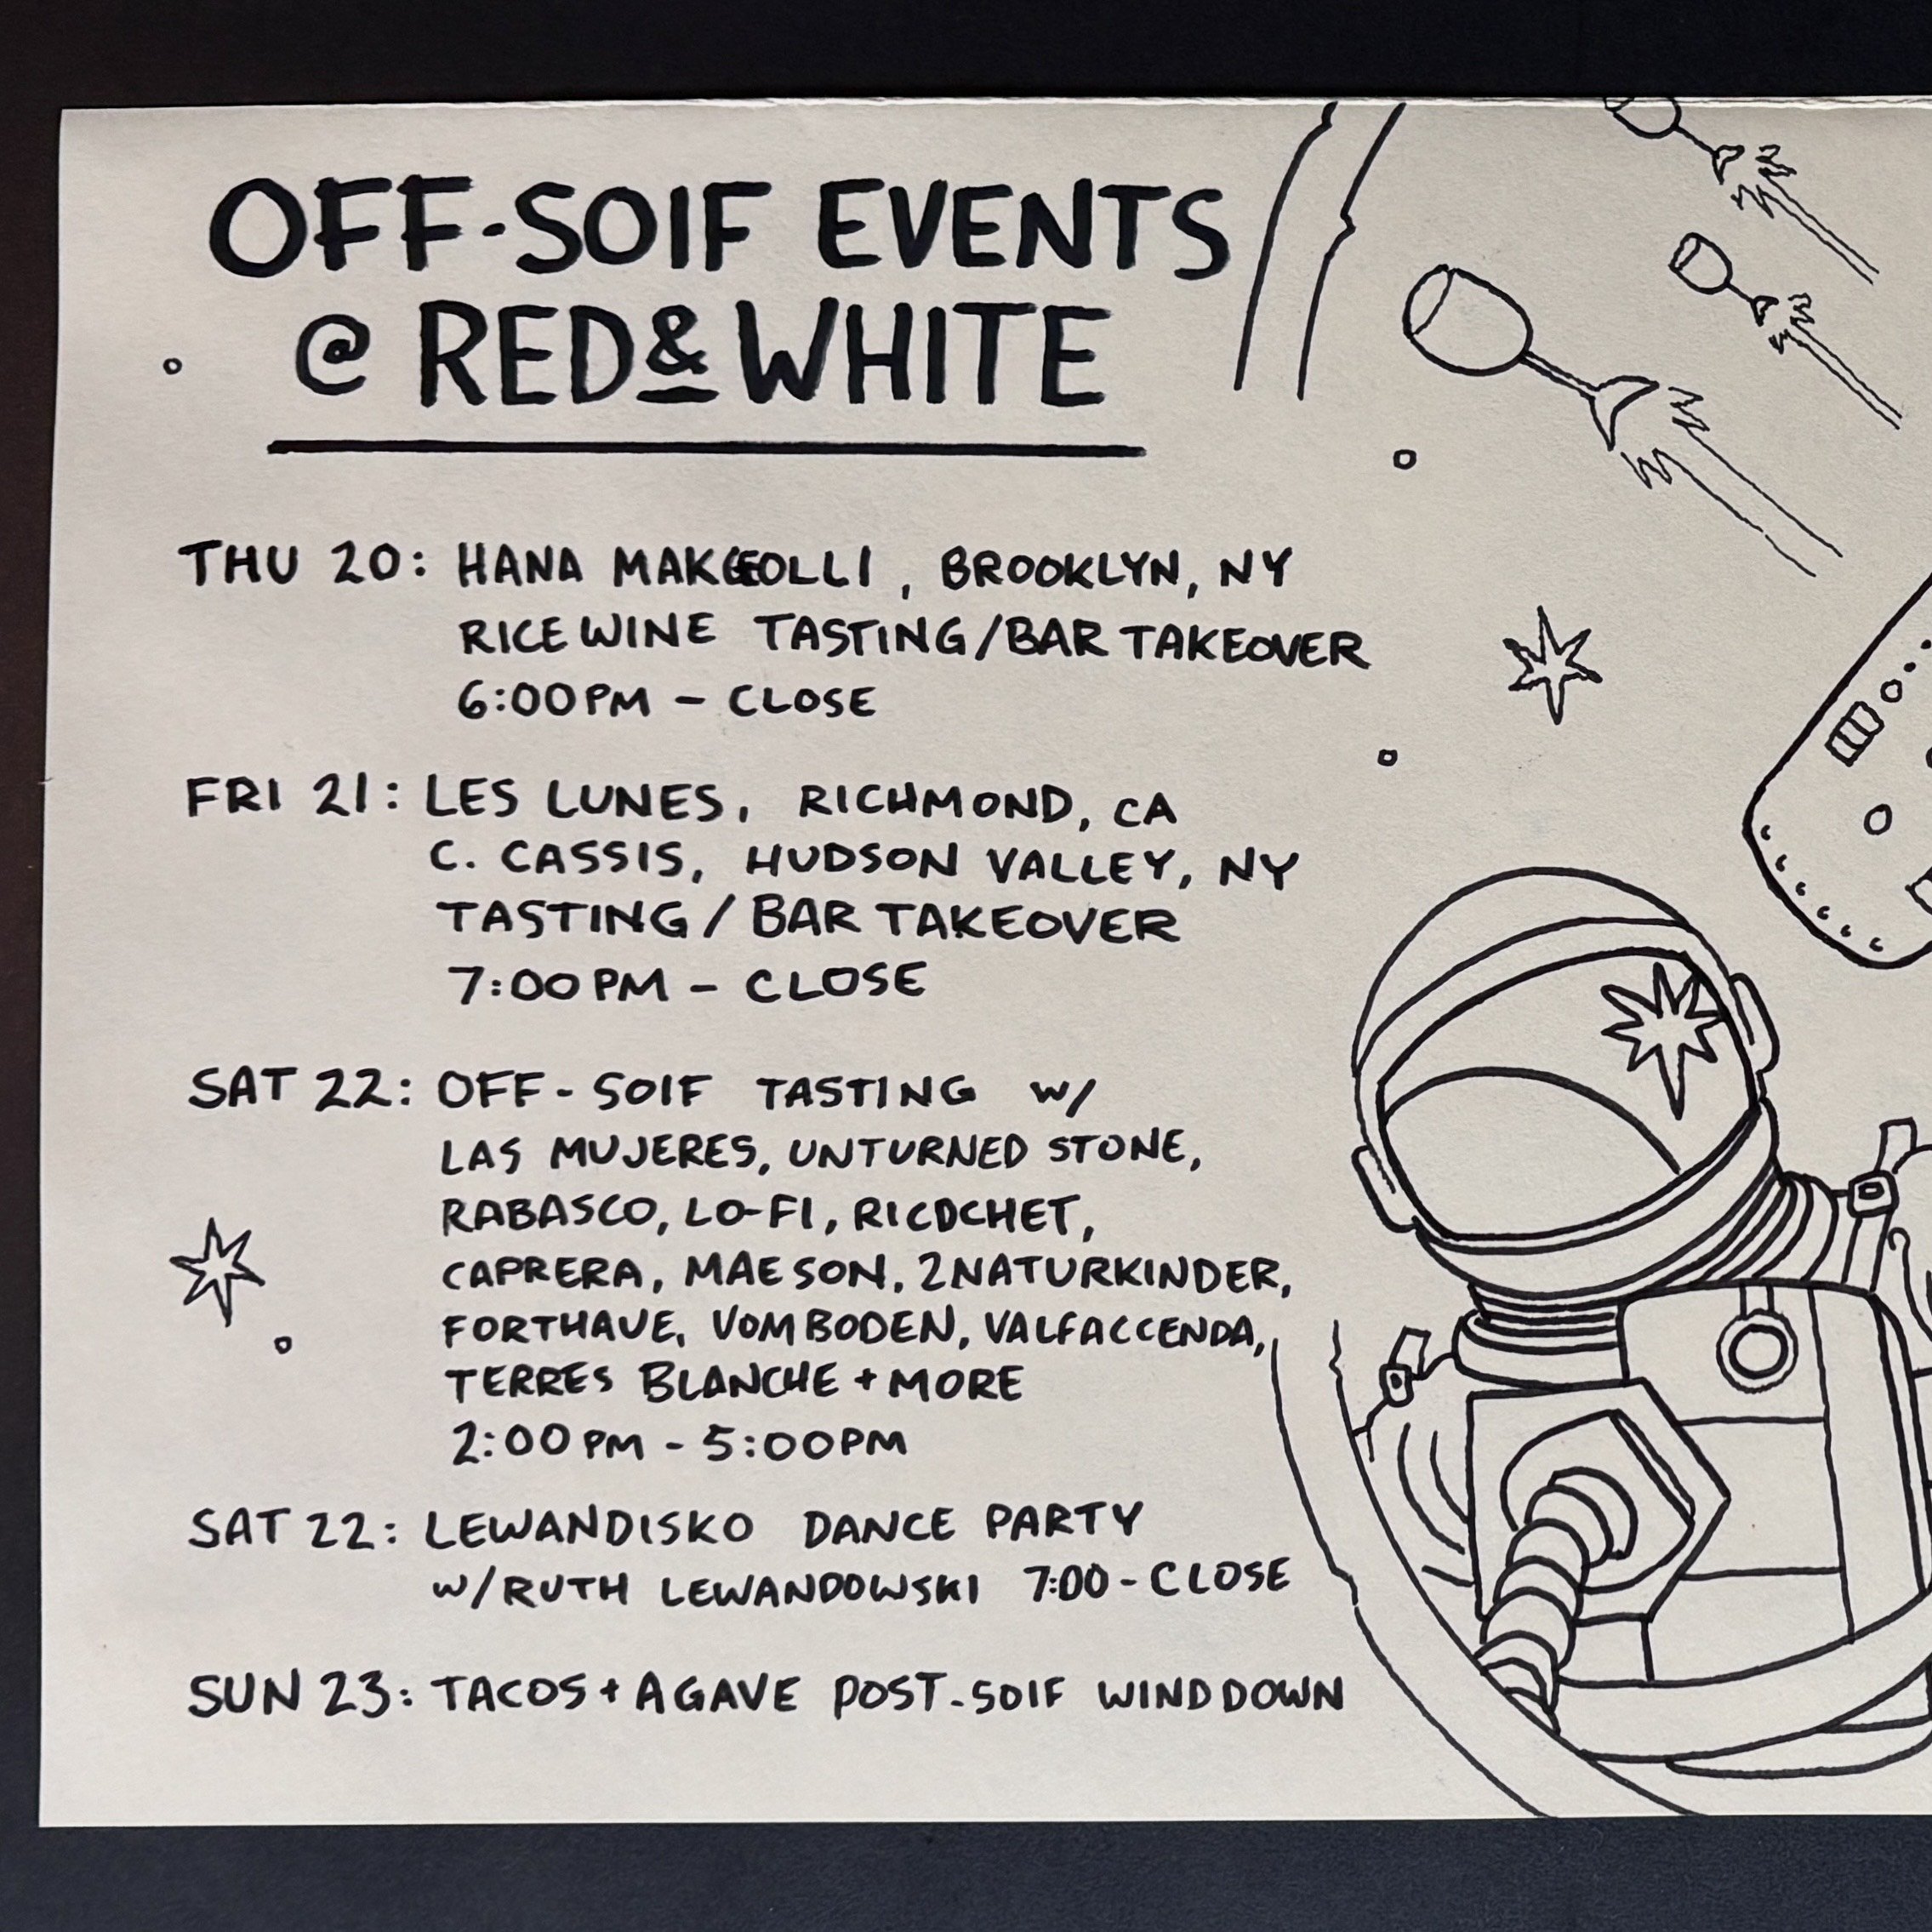 OFF-SOIF EVENTS
@ RED & WHITE
THU 20: HANA MAKGEOLLI, BROOKLYN, NY
RICE WINE TASTING/BAR TAKEOVER
6:00PM - CLOSE
FRI 21: LES LUNES, RICHMOND, CA
C. CASSIS, HUDSON VALLEY, NY
TASTING / BAR TAKEOVER
7:00PM - CLOSE
SAT 22: OFF-SOIF TASTING W/
LAS MUJERES, UNTURNED STONE,
RABASCO, LO-FI, RICOCHET,
CAPRERA, MAE SON, 2NATURKINDER,
FORTHAVE, VOM BODEN, VALFACCENDA,
TERRES BLANCHE + MORE
2:00PM - 5:00PM
SAT 22: LEWANDISKO DANCE PARTY
W/RUTH LEWANDOWSKI 7:00-CLOSE
SUN 23: TACOS + AGAVE POST-SOIF WIND DOWN